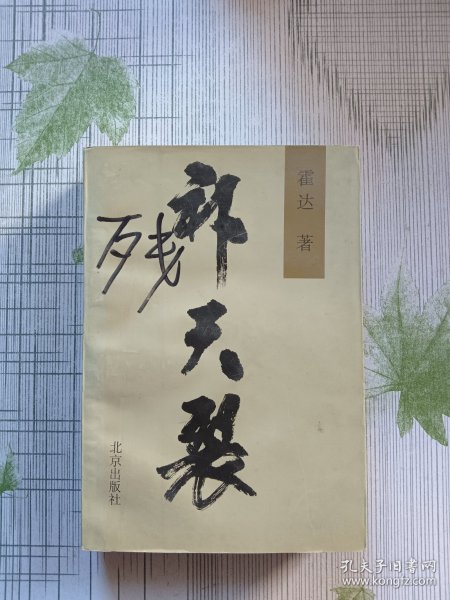 霍达 著
补天裂
残
北京出版社
孔夫子旧书网
www.kongfz.com